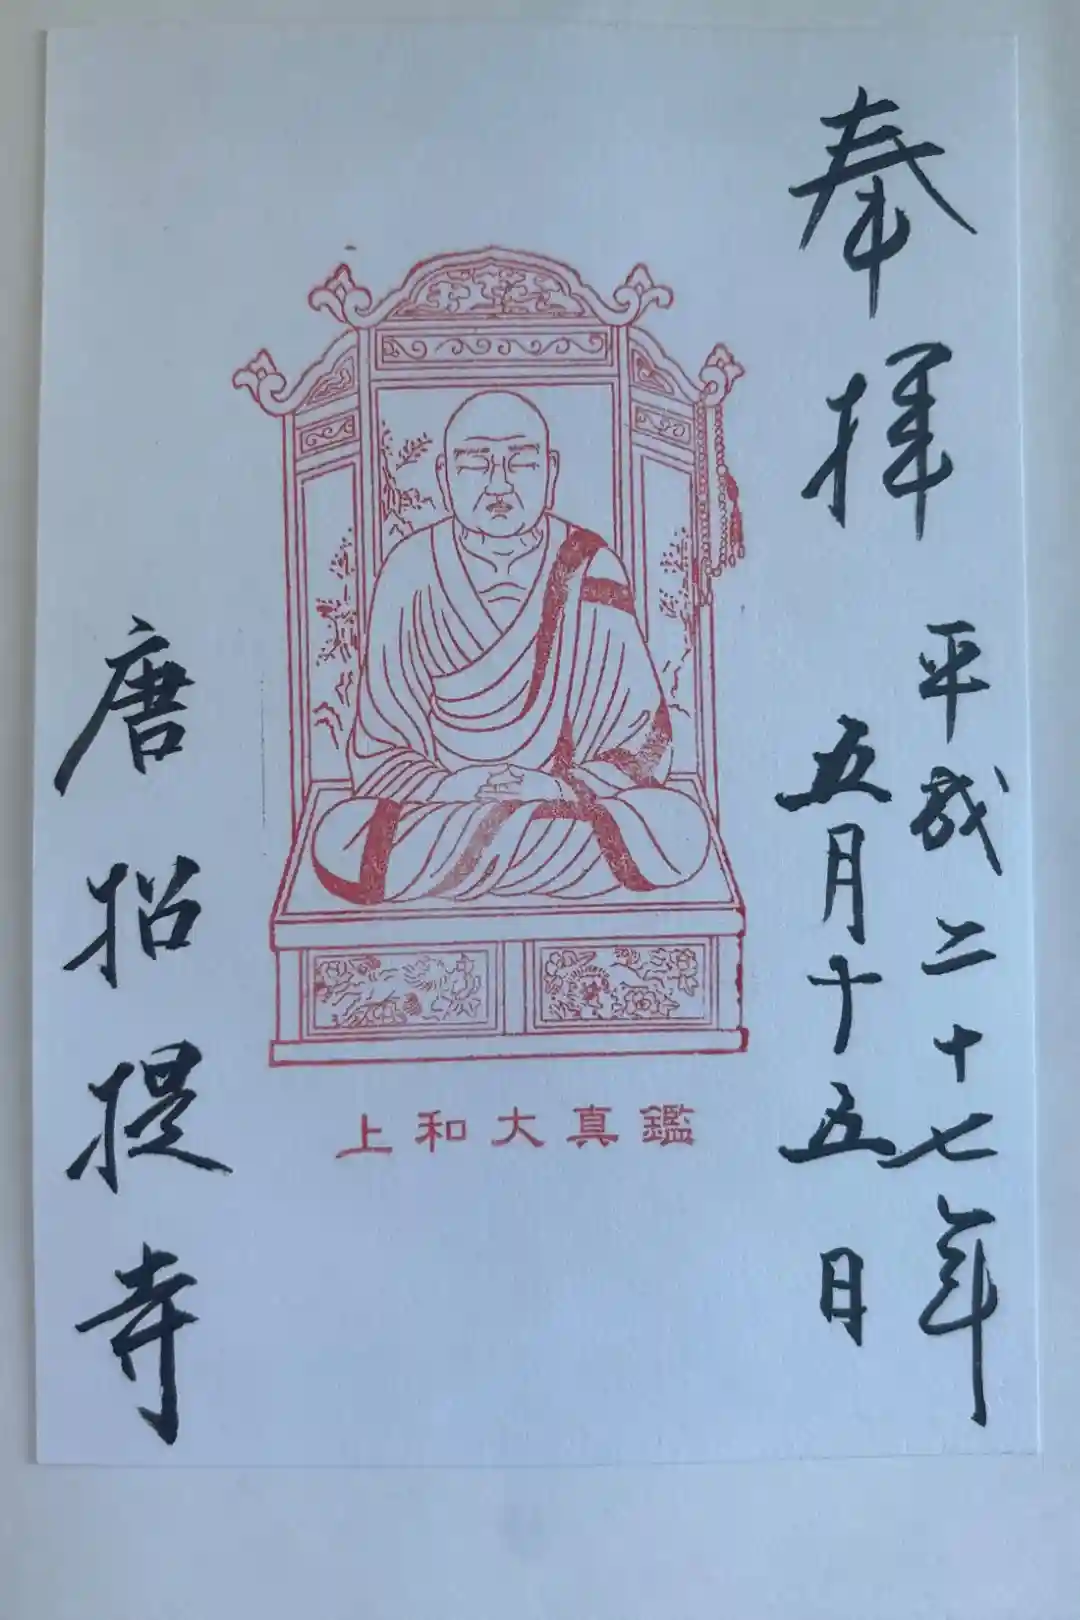 奉拝
平成二十七年
五月十五日
鑑真大和上
唐招提寺